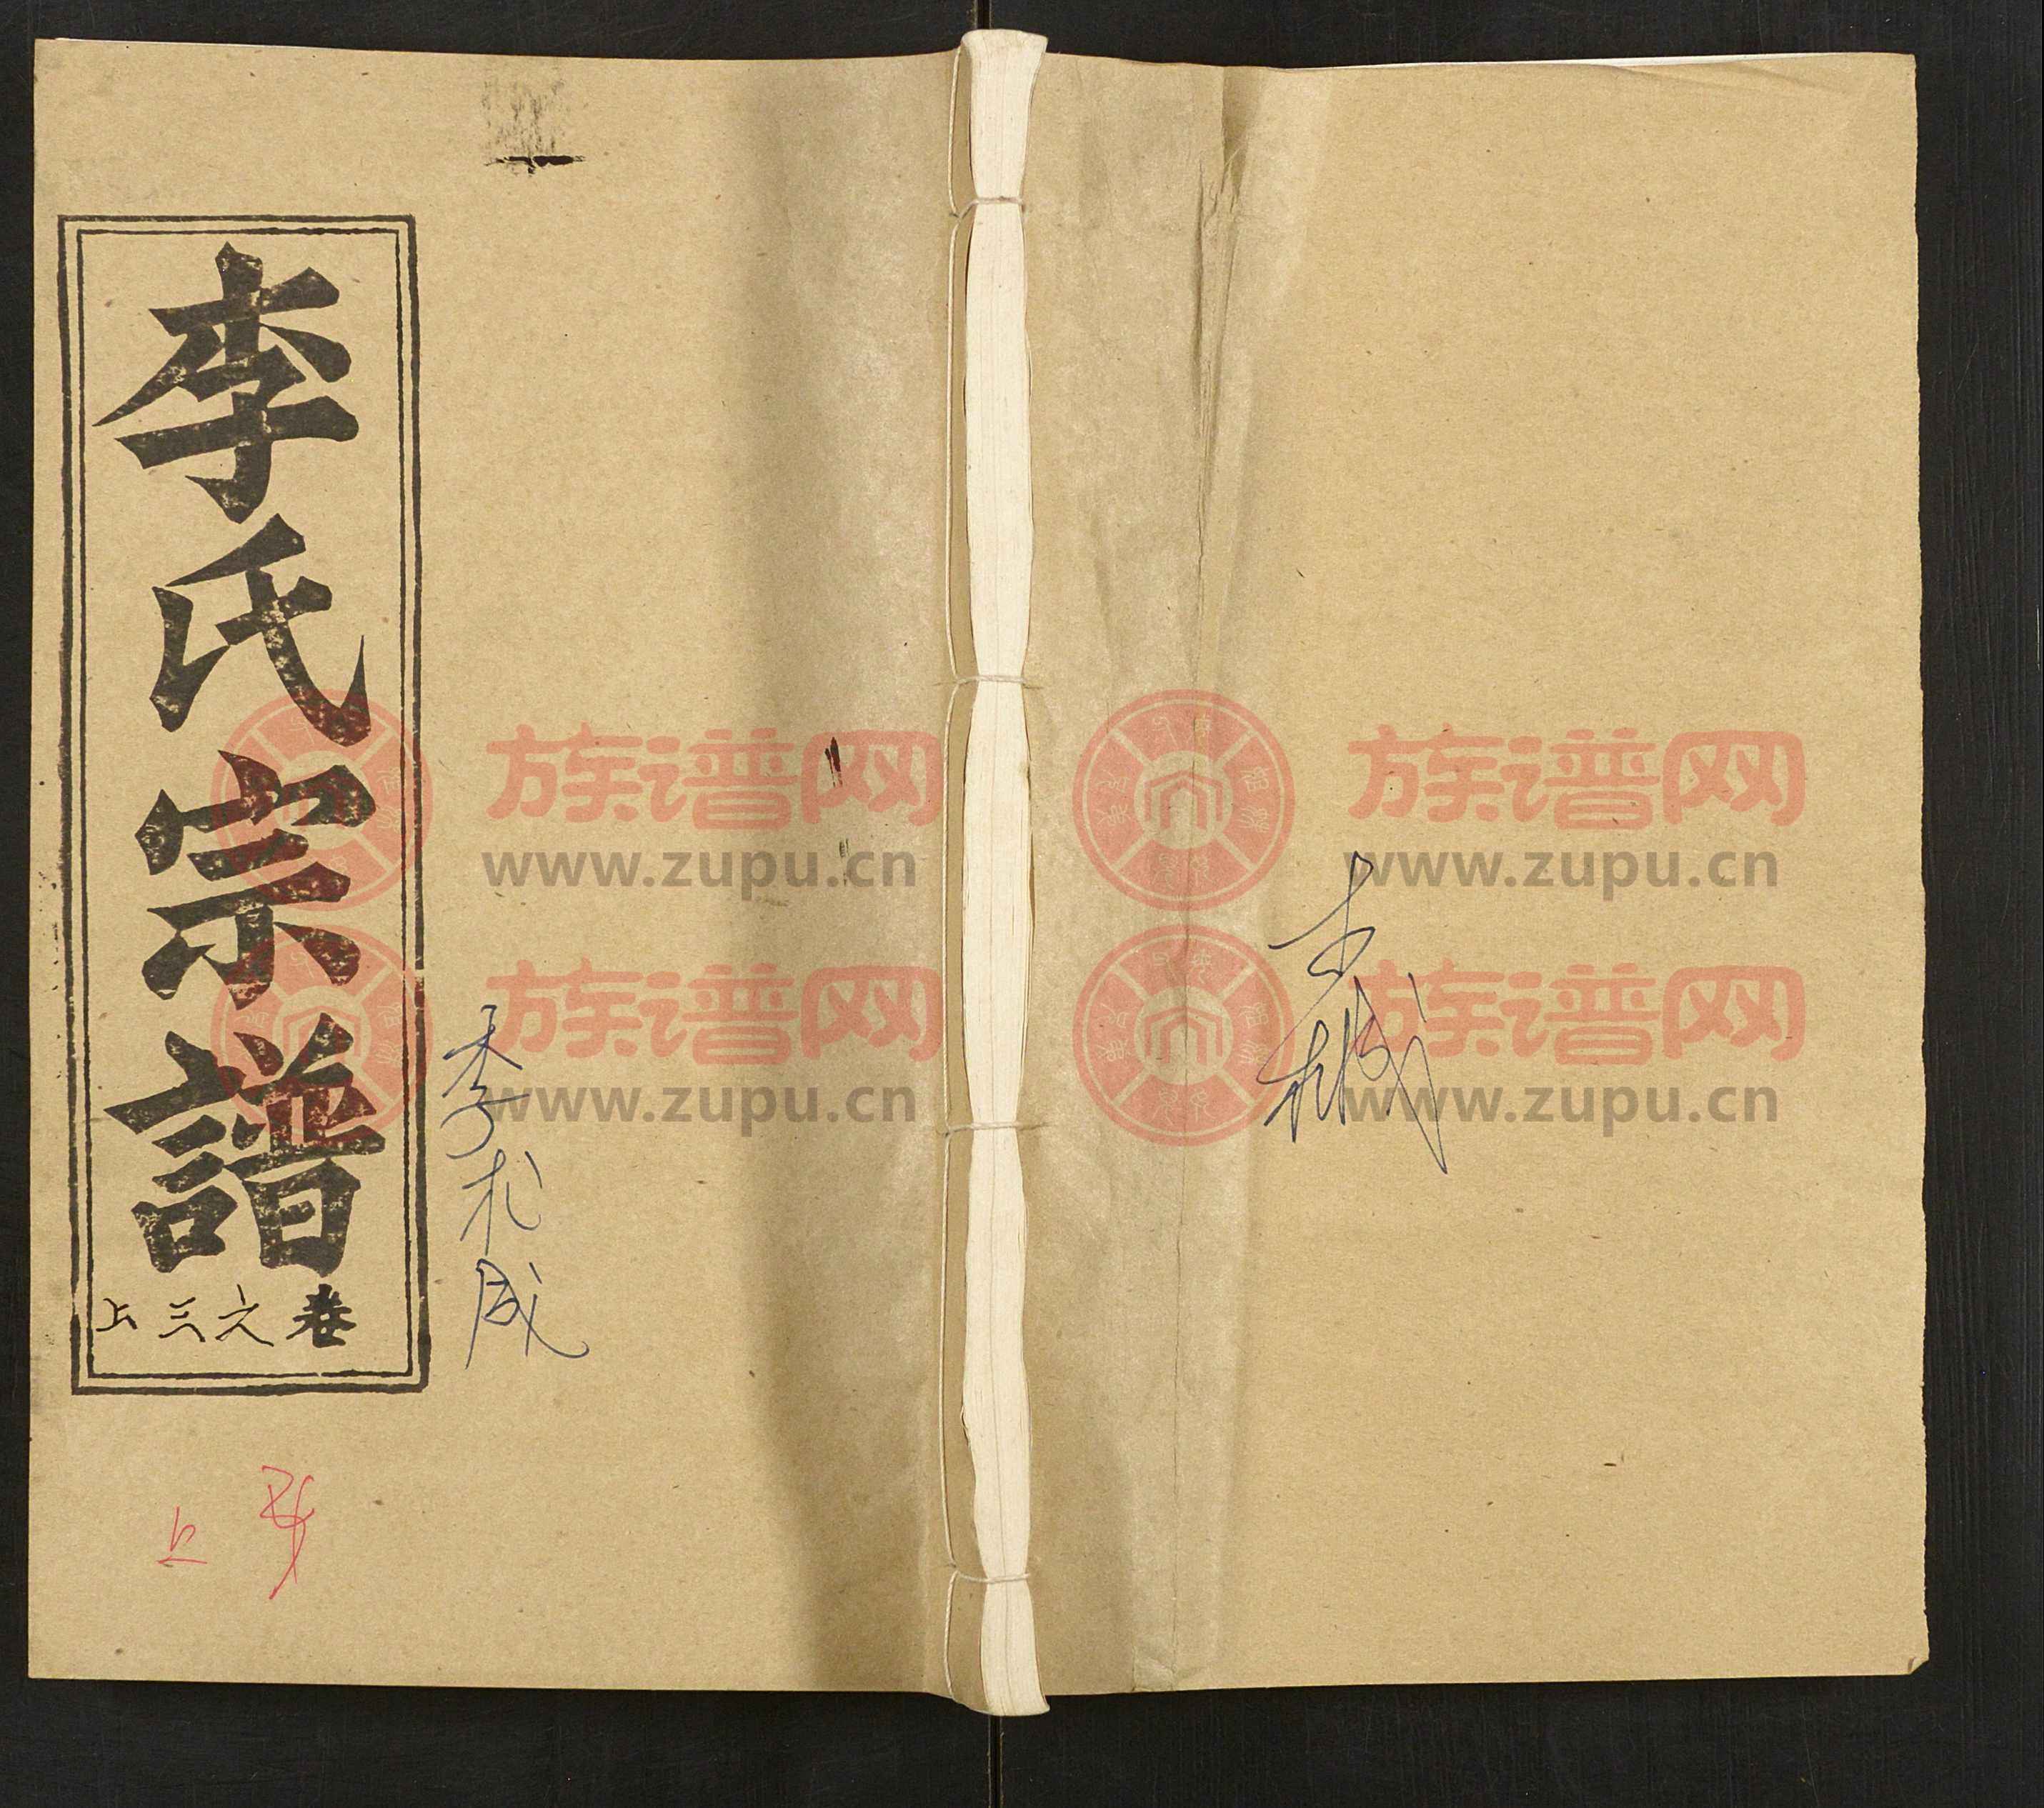 李氏宗譜
卷六三上
族谱网
www.zupu.cn
族谱网
www.zupu.cn
族谱网
www.zupu.cn
族谱网
www.zupu.cn
上